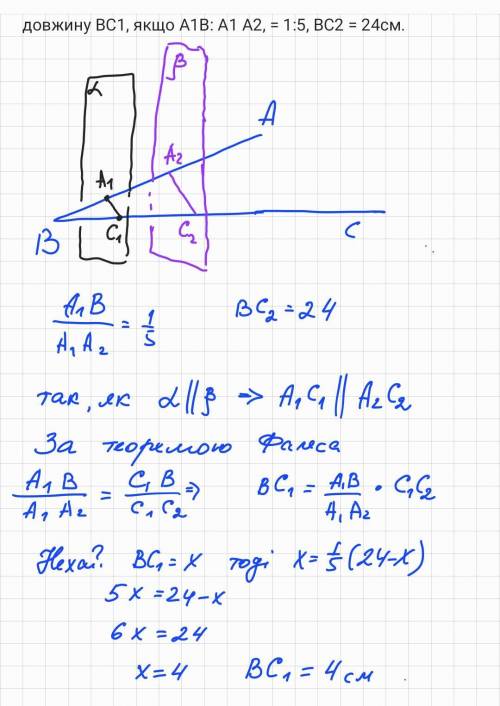 довжину BC1, якщо A1B: A1 A2, = 1:5, BC2 = 24см.
α
β
A
A₂
A₁
B
C₁
C₂
C
A₁B / A₁A₂ = 1/5    BC₂ = 24
так, як α || β => A₁C₁ || A₂C₂
За теоремою Фалеса
A₁B / A₁A₂ = C₁B / C₁C₂ => BC₁ = A₁B / A₁A₂ • C₁C₂
Нехай BC₁ = x тоді x = 1/5 (24-x)
5x = 24-x
6x = 24
x = 4    BC₁ = 4 см